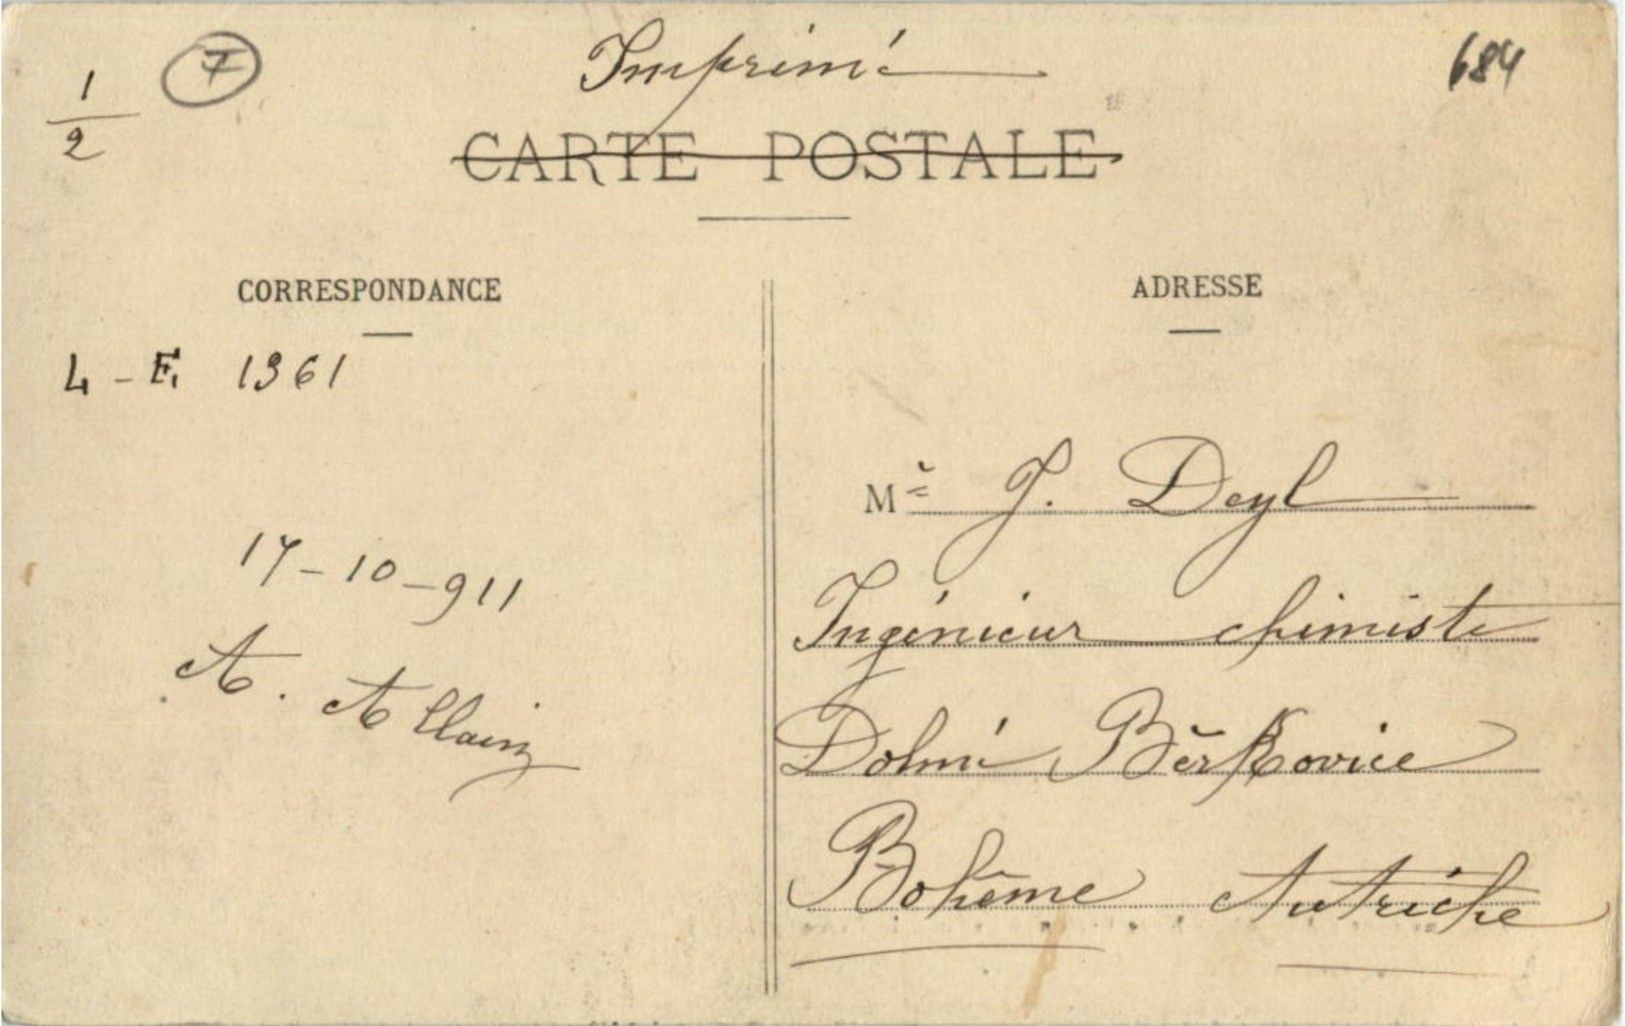 1/2
7
Imprimé
684
CARTE POSTALE
CORRESPONDANCE
4 - E. 1361
17-10-911
A. Allain
ADRESSE
Mr J. Deyl
Ingénieur chimiste
Dolní Běrkovice
Bohême Autriche